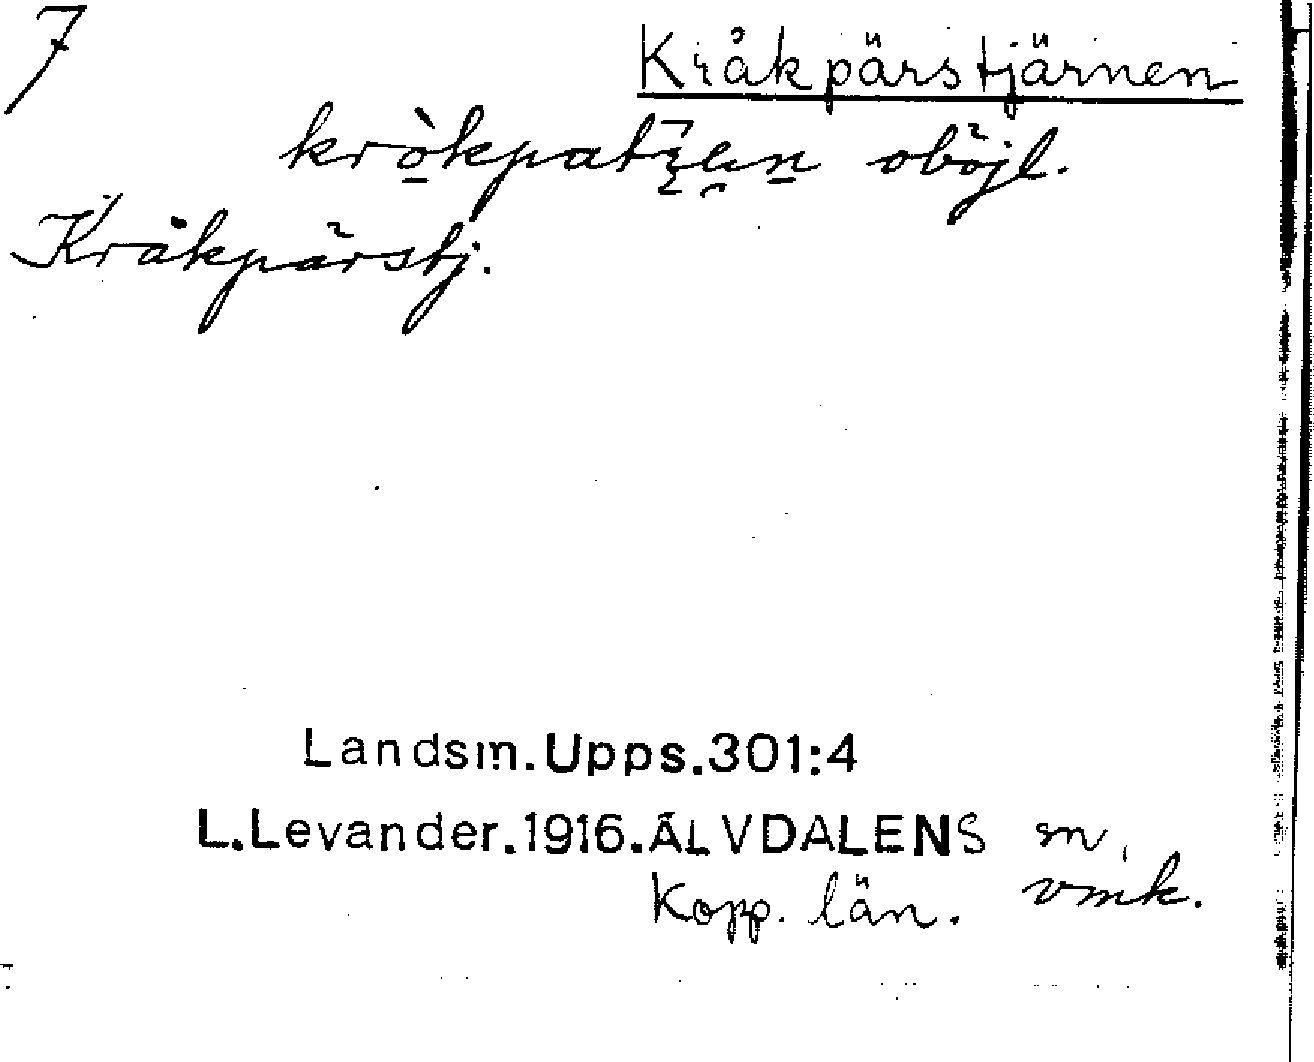 7
Kråkpärstjärnen
oböjl.
Kråkpärstj.
Landsm.Upps.301:4
L.Levander.1916.ÄLVDALENS sn,
vmk.
Kopp. län.